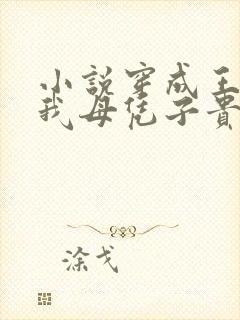 小說穿成王
我母凭子貴
涂戈